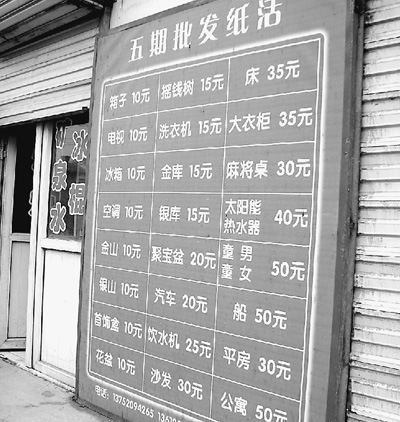 五期批发纸活
箱子 10元 摇钱树 15元 床 35元
电视 10元 洗衣机 15元 大衣柜 35元
冰箱 10元 金库 15元 麻将桌 30元
空调 10元 银库 15元 太阳能热水器 40元
金山 10元 聚宝盆 20元 童男童女 50元
银山 10元 汽车 20元 船 50元
首饰盒 10元 饮水机 25元 平房 30元
花盆 10元 沙发 30元 公寓 50元
电话: 13752094265
矿泉水
冰棍